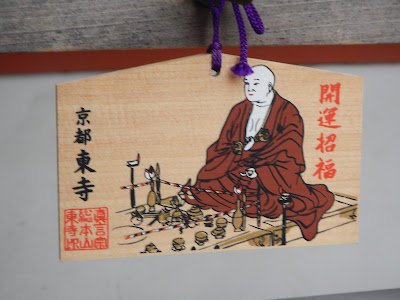 開運招福
京都東寺
真言宗
総本山
東寺印